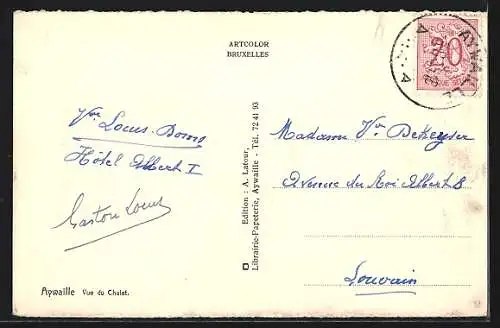 ARTCOLOR
BRUXELLES
AYWAILLE
A A
20
Vve Louis-
Hôtel Albert I
Gaston Louis
Madame Vve Dekeyser
Avenue du Roi Albert 8
Louvain
Edition : A. Latour,
Librairie-Papeterie, Aywaille - Tél. 72 41 93
Aywaille Vue du Chalet.